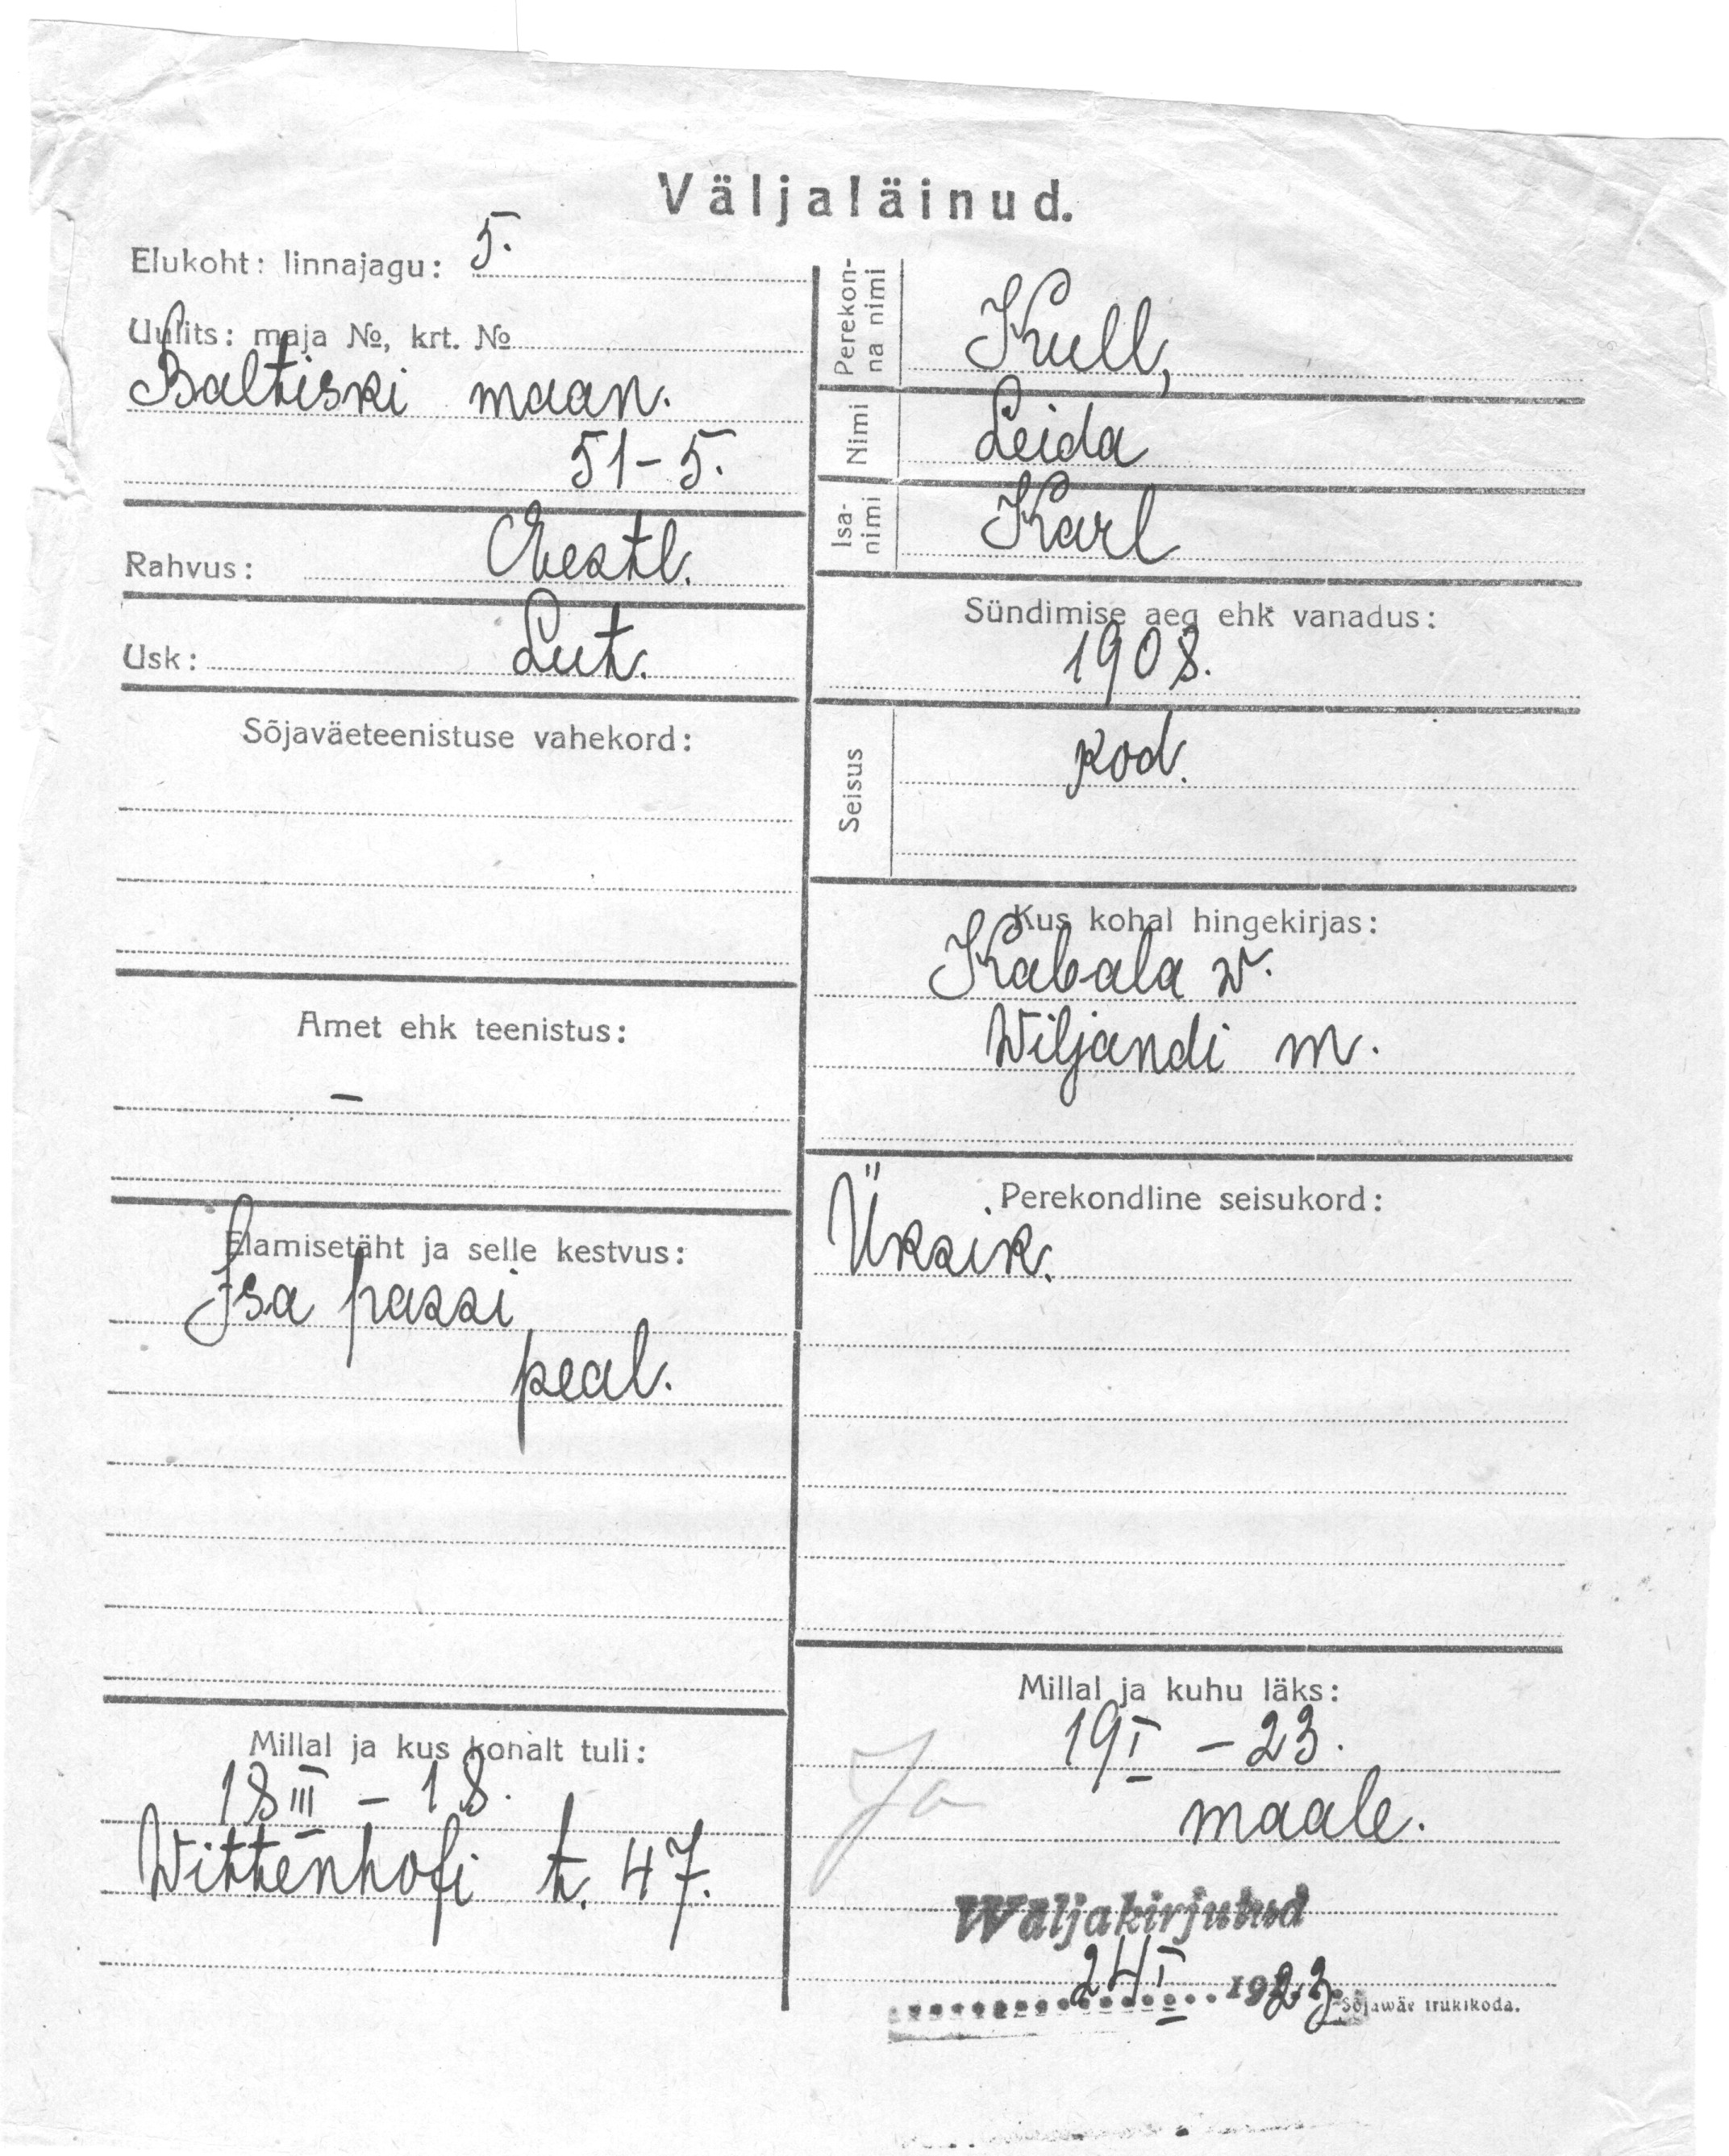 Väljaläinud.
Elukoht: linnajagu: 5.
Uulits: maja №, krt. №
Baltiski maan.
51-5.
Rahvus: Eestl.
Usk: Lut.
Sõjaväeteenistuse vahekord:
Amet ehk teenistus:
–
Elamisetäht ja selle kestvus:
Isa passi
peal.
Millal ja kus konalt tuli:
18 III – 18.
Wittenhofi t. 47.
Perekon-
na nimi
Kull,
Nimi Leida
Isa-
nimi
Karl
Sündimise aeg ehk vanadus:
1908.
Seisus
kod.
Kus kohal hingekirjas:
Kabala w.
Wiljandi m.
Perekondline seisukord:
Üksik.
Millal ja kuhu läks:
19 I – 23.
maale.
Ja
Wäljakirjutud
24 I 1923.
Sõjawäe trükikoda.